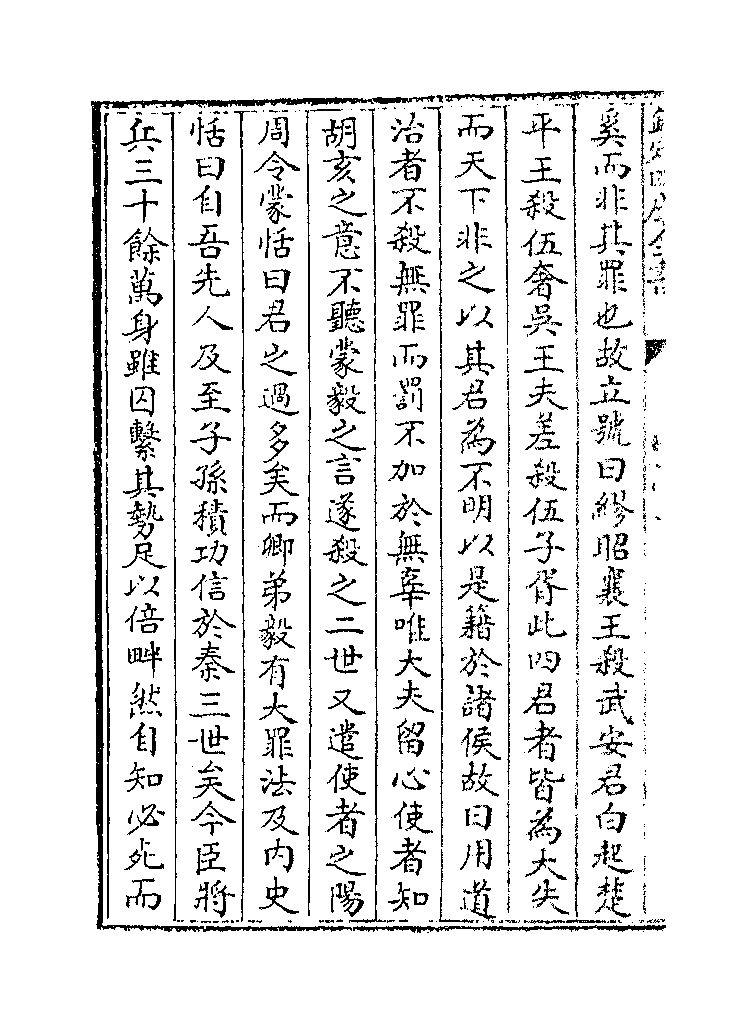 奚而非其罪也故立號曰繆昭襄王殺武安君白起楚
平王殺伍奢吳王夫差殺伍子胥此四君者皆為大失
而天下非之以其君為不明以是籍於諸侯故曰用道
治者不殺無罪而罰不加於無辜唯大夫留心使者知
胡亥之意不聽蒙毅之言遂殺之二世又遣使者之陽
周令蒙恬曰君之過多矣而卿弟毅有大罪法及内史
恬曰自吾先人及至子孫積功信於秦三世矣今臣將
兵三十餘萬身雖囚繫其勢足以倍畔然自知必死而